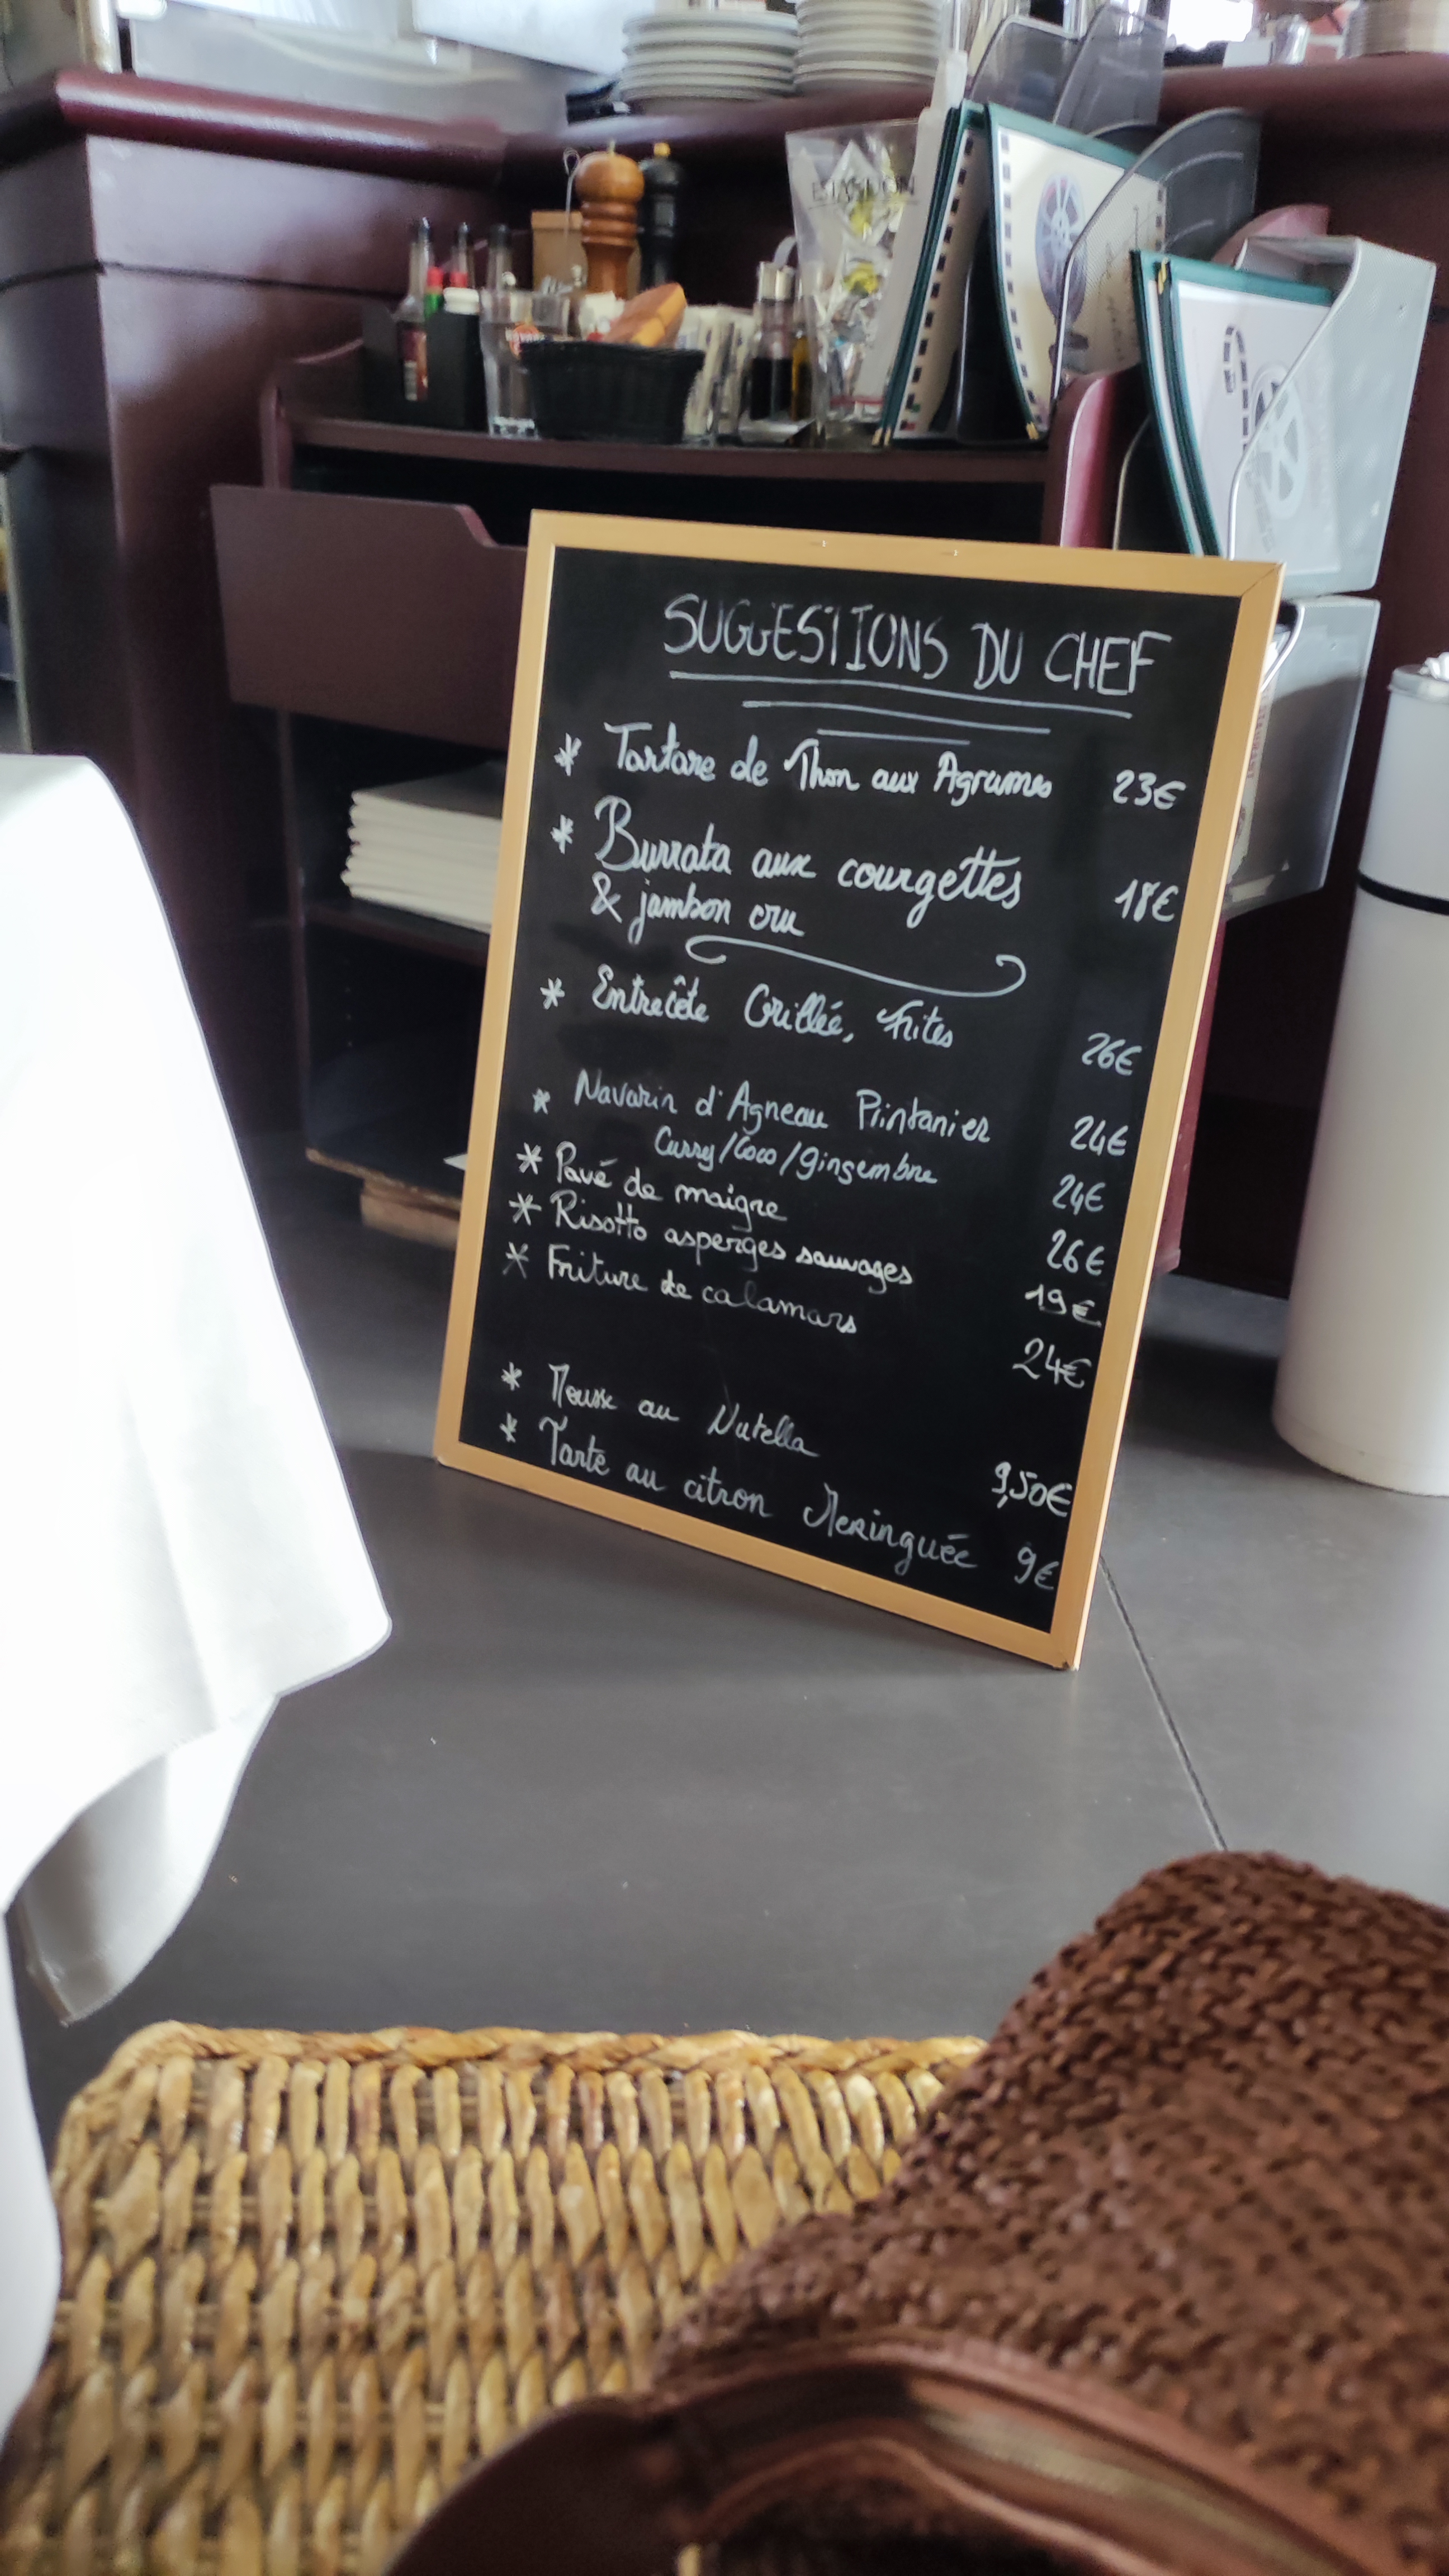 SUGGESTIONS DU CHEF
* Tartare de Thon aux Agrumes 23€
* Burrata aux courgettes 18€
& jambon cru
* Entrecôte Grillée, Frites 26€
* Navarin d'Agneau Printanier 24€
Curry/Coco/gingembre 24€
* Pavé de maigre 26€
* Risotto asperges sauvages 19€
* Friture de calamars 24€
* Mousse au Nutella 9,50€
* Tarte au citron Meringuée 9€